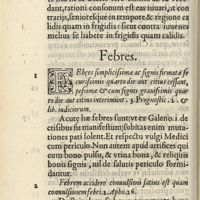 dant, rationi consonum est eas iuuari, at con
trarijs, senioresque in tempore & regione ca
lidis quam in frigidis: sicut contra iuuenes
melius se habere in frigidis quam calidis.
Febres.
1
FEbres simplicissimæ ac signis firmatæ se
curissimis quarto die aut citius cessant,
pessimæ & cum signis grauissimis quar
to die aut citius interimunt. 3. Prognostic. 1. &
lib. iudiciorum.
Acutę hæ febres sunt, vt ex Galeno. 1. de
crisibus fit manifestum; subitas enim mutationes
pati solent. Et respectu vulgi Medici
cum periculo. Non autem apud artifices qui
cum bono pulsu, & vrina bona, & reliquis
bonis signis, nil de salutis periculo formi
dantur.
2
Febrem accidere conuulsioni satius est quam
conuulsionem febri. 2. Apho. 26.